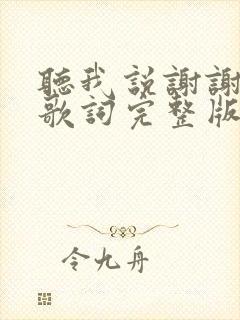 聽我説謝謝
歌詞完整版
令九舟